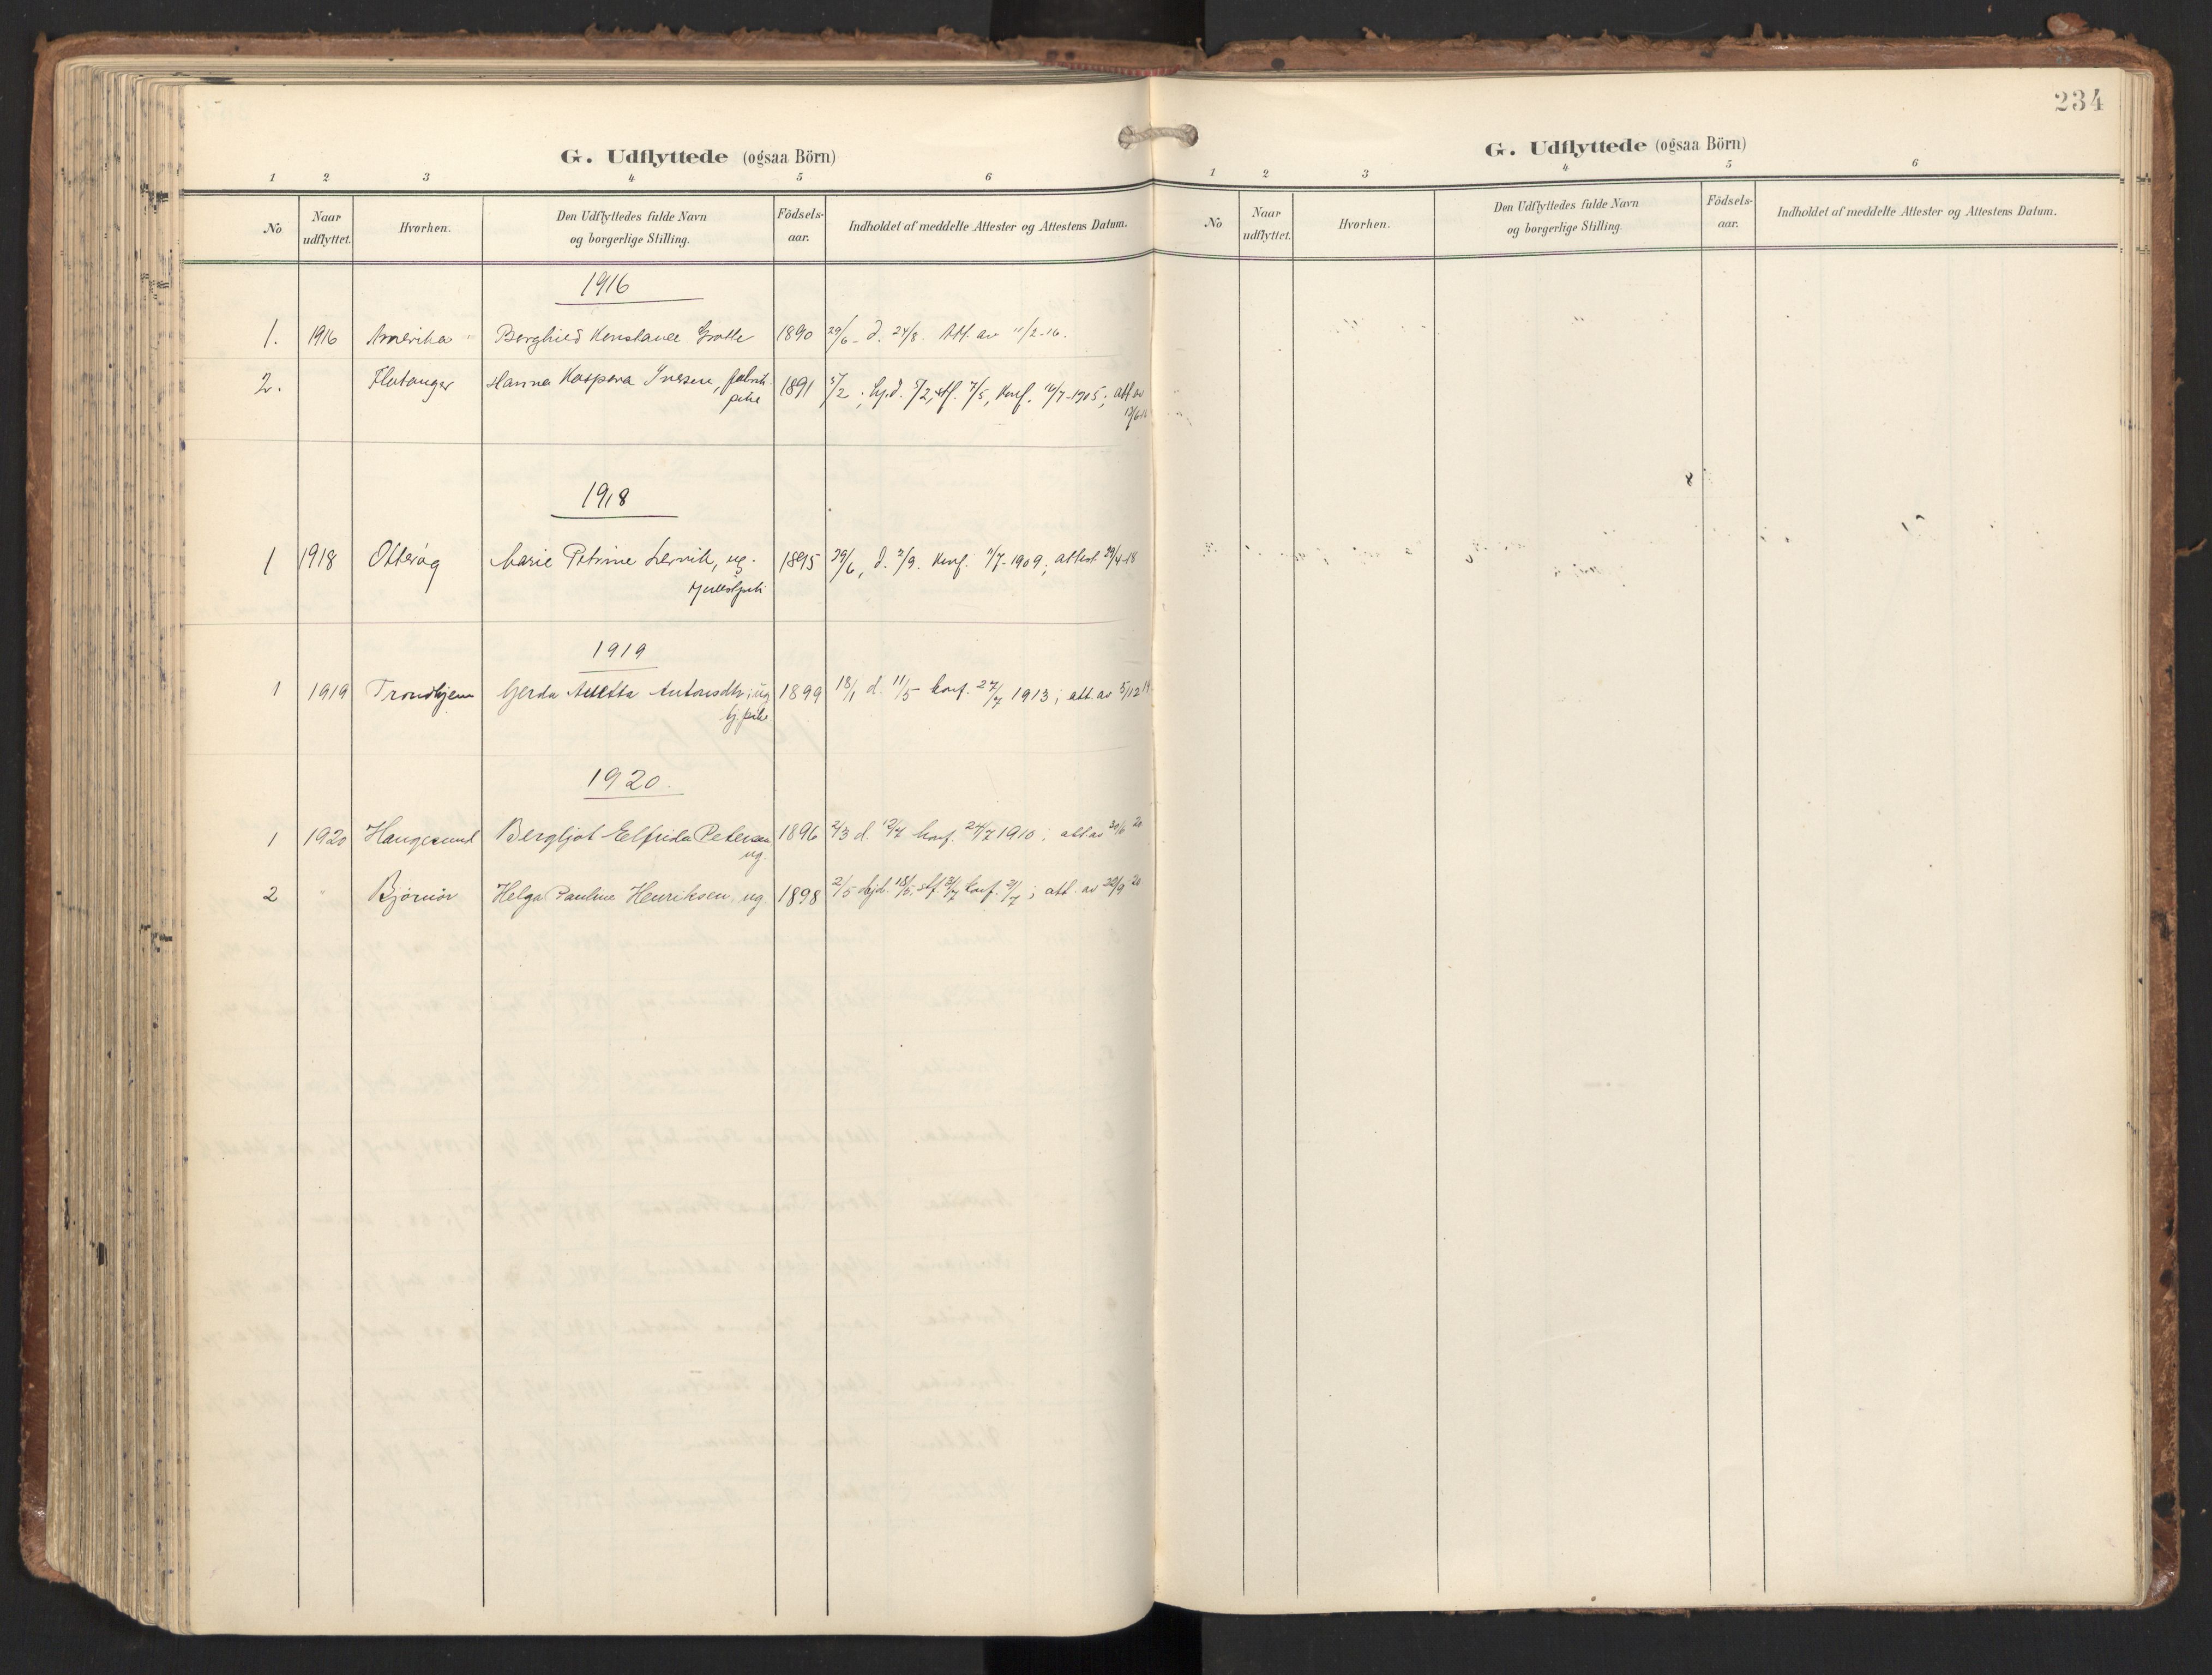 G. Udflyttede (ogsaa Börn)
1 2 3 4 5 6
No
Naar udflyttet.
Hvorhen.
Den Udflyttedes fulde Navn og borgerlige Stilling.
Födsels-aar.
Indholdet af meddelte Attester og Attestens Datum.
1916
1. 1916 Amerika Berghied Konstance Grotte 1890 29/6 - d. 24/8. Att. av 11/2-16.
2. Flatanger Hanna Kaspara Iversen, fabrik 1891 5/2; hjd. 5/2, stf. 7/5, konf. 16/7-1905; att av
pike
1918
1 1918 Otterøy Marie Petrine Lervik, ug. 1895 29/6, d. 2/9. konf. 11/7-1909; attest 29/4-18
1919
1 1919 Trondhjem Gerda Antonsdtr; ug 1899 18/1 d. 11/5 konf. 27/7 1913; att. av 5/12 19
tj. pike
1920.
1 1920 Haugesund Bergljot Elfrida Petersen 1896 2/3 d. 12/7 konf. 24/7 1910; att av 30/6 20
ug.
2 " Bjørnør Helga Pauline Henriksen, ug. 1898 2/5 hjd. 18/5, stf. 31/7 konf. 21/7; att. av 22/9 20
234
G. Udflyttede (ogsaa Börn)
1 2 3 4 5 6
No
Naar udflyttet.
Hvorhen.
Den Udflyttedes fulde Navn og borgerlige Stilling.
Födsels-aar.
Indholdet af meddelte Attester og Attestens Datum.